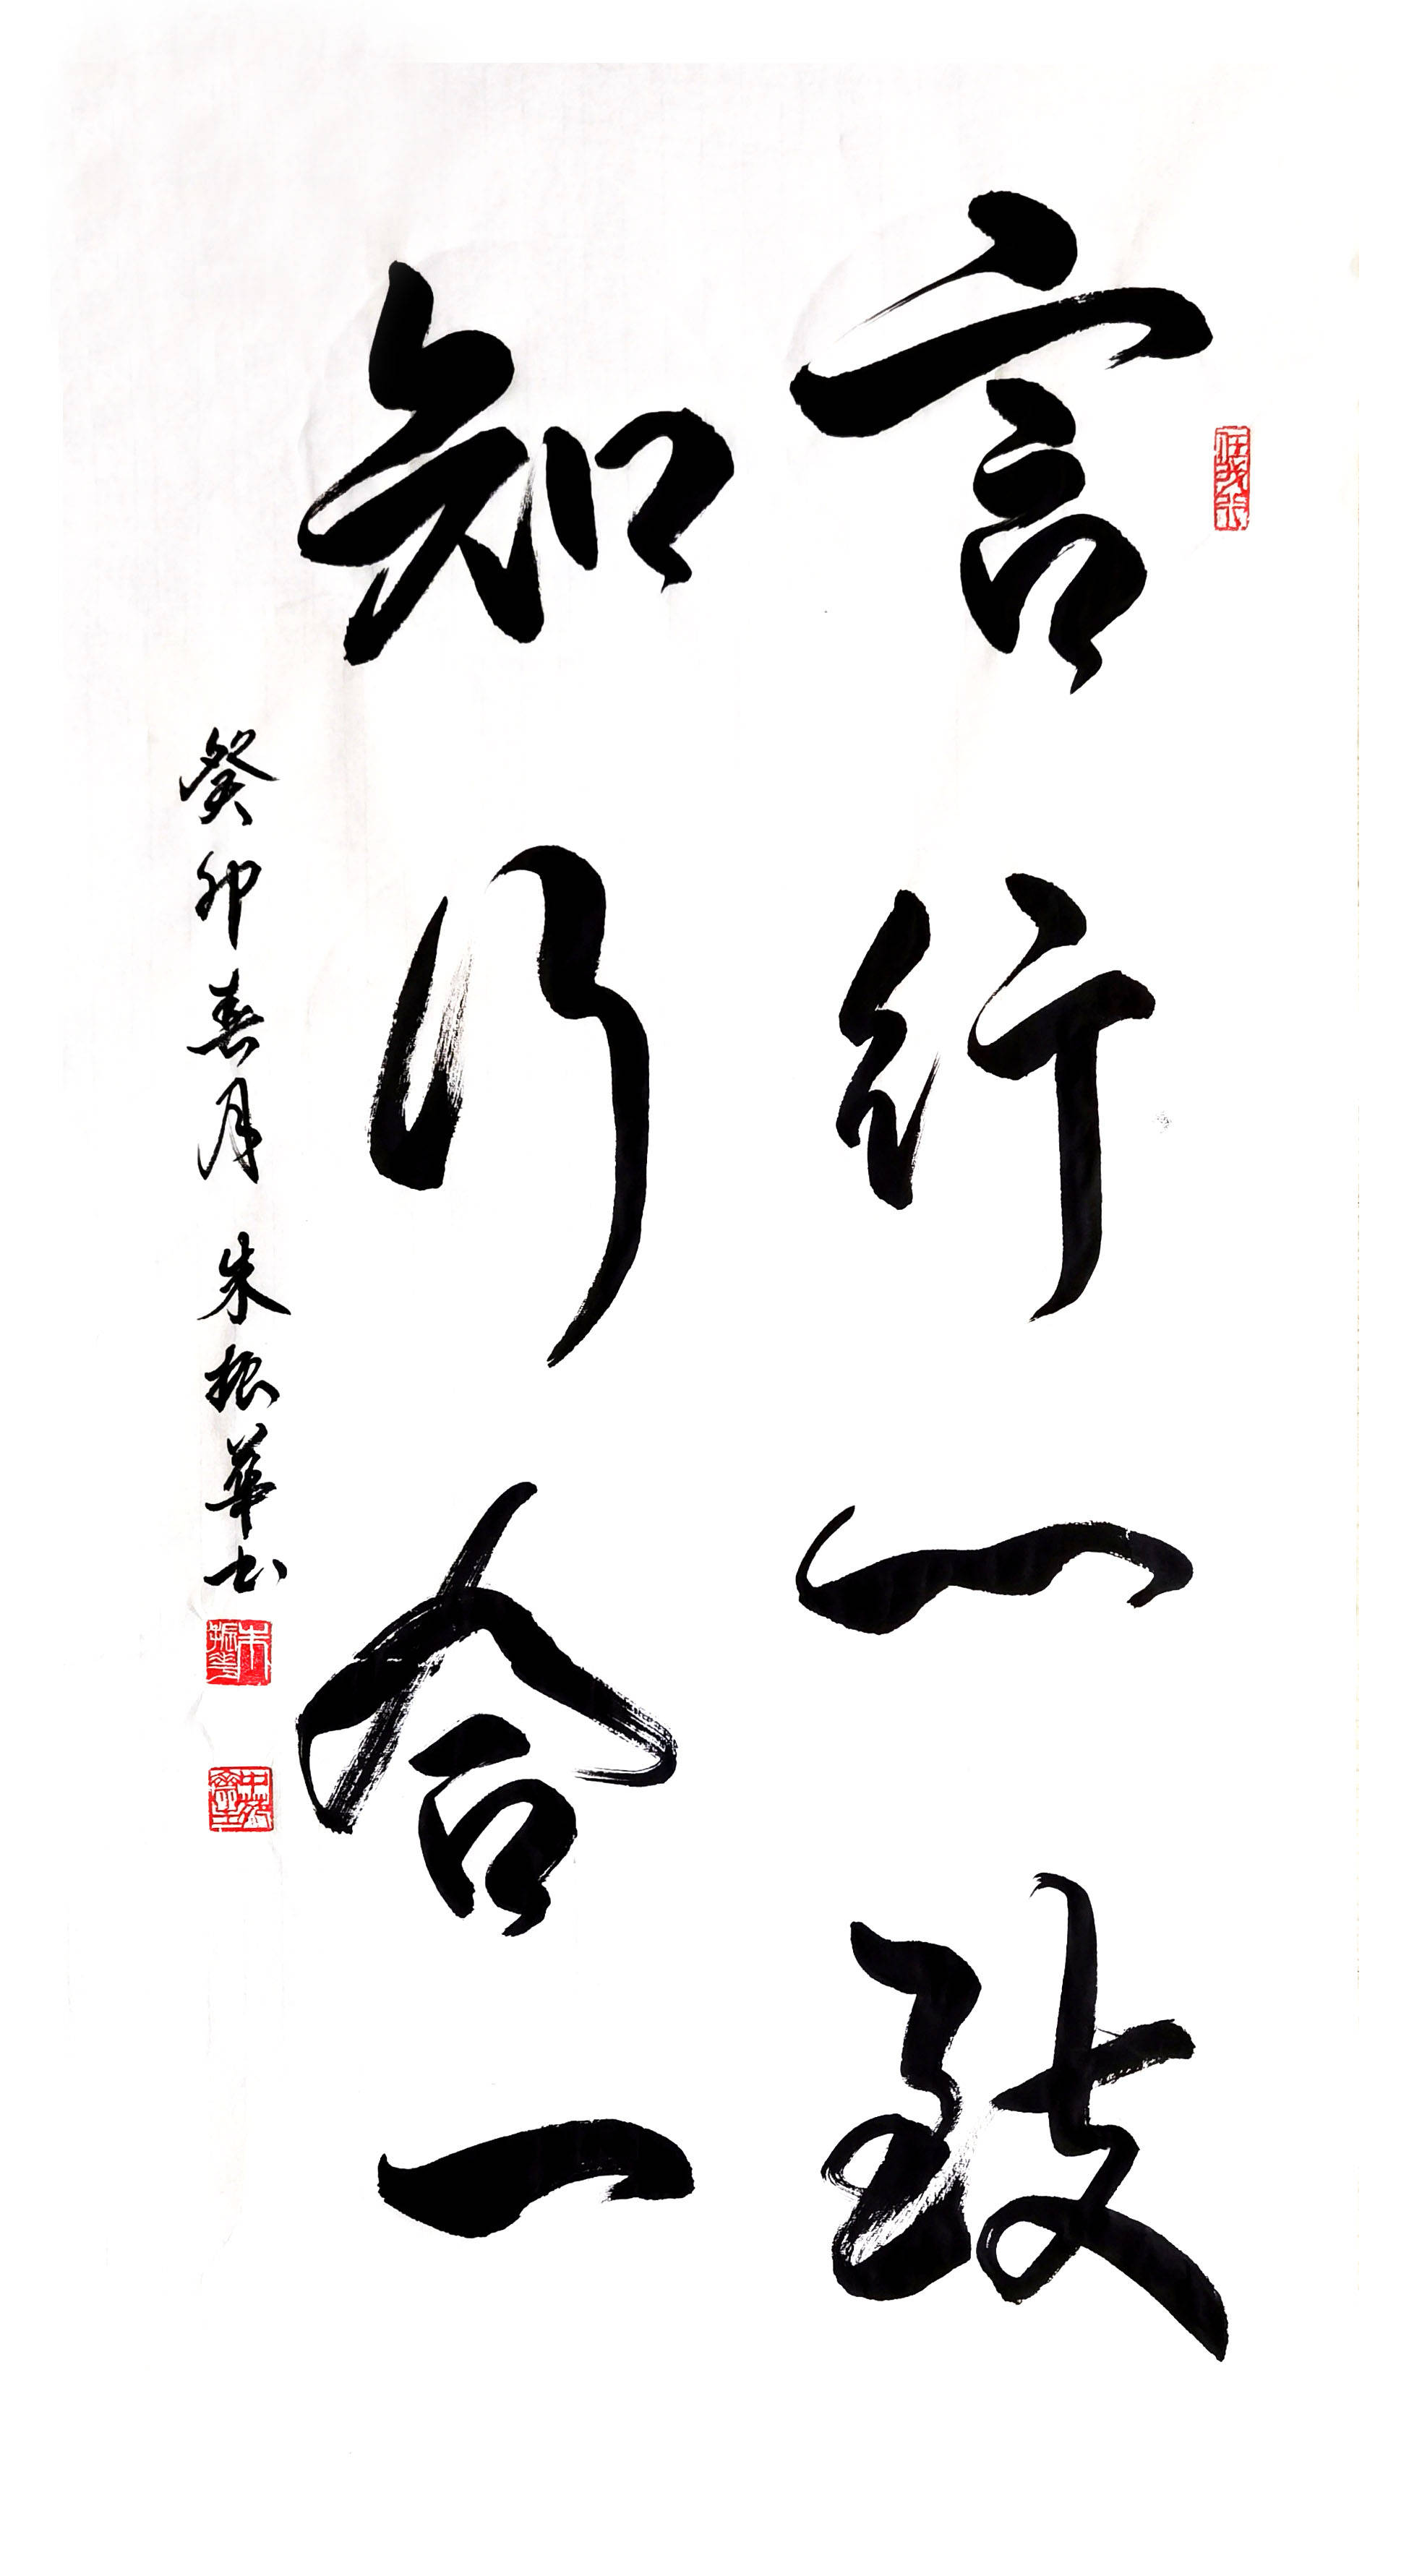 言行一致
知行合一
癸卯春月 朱振華书
朱振華